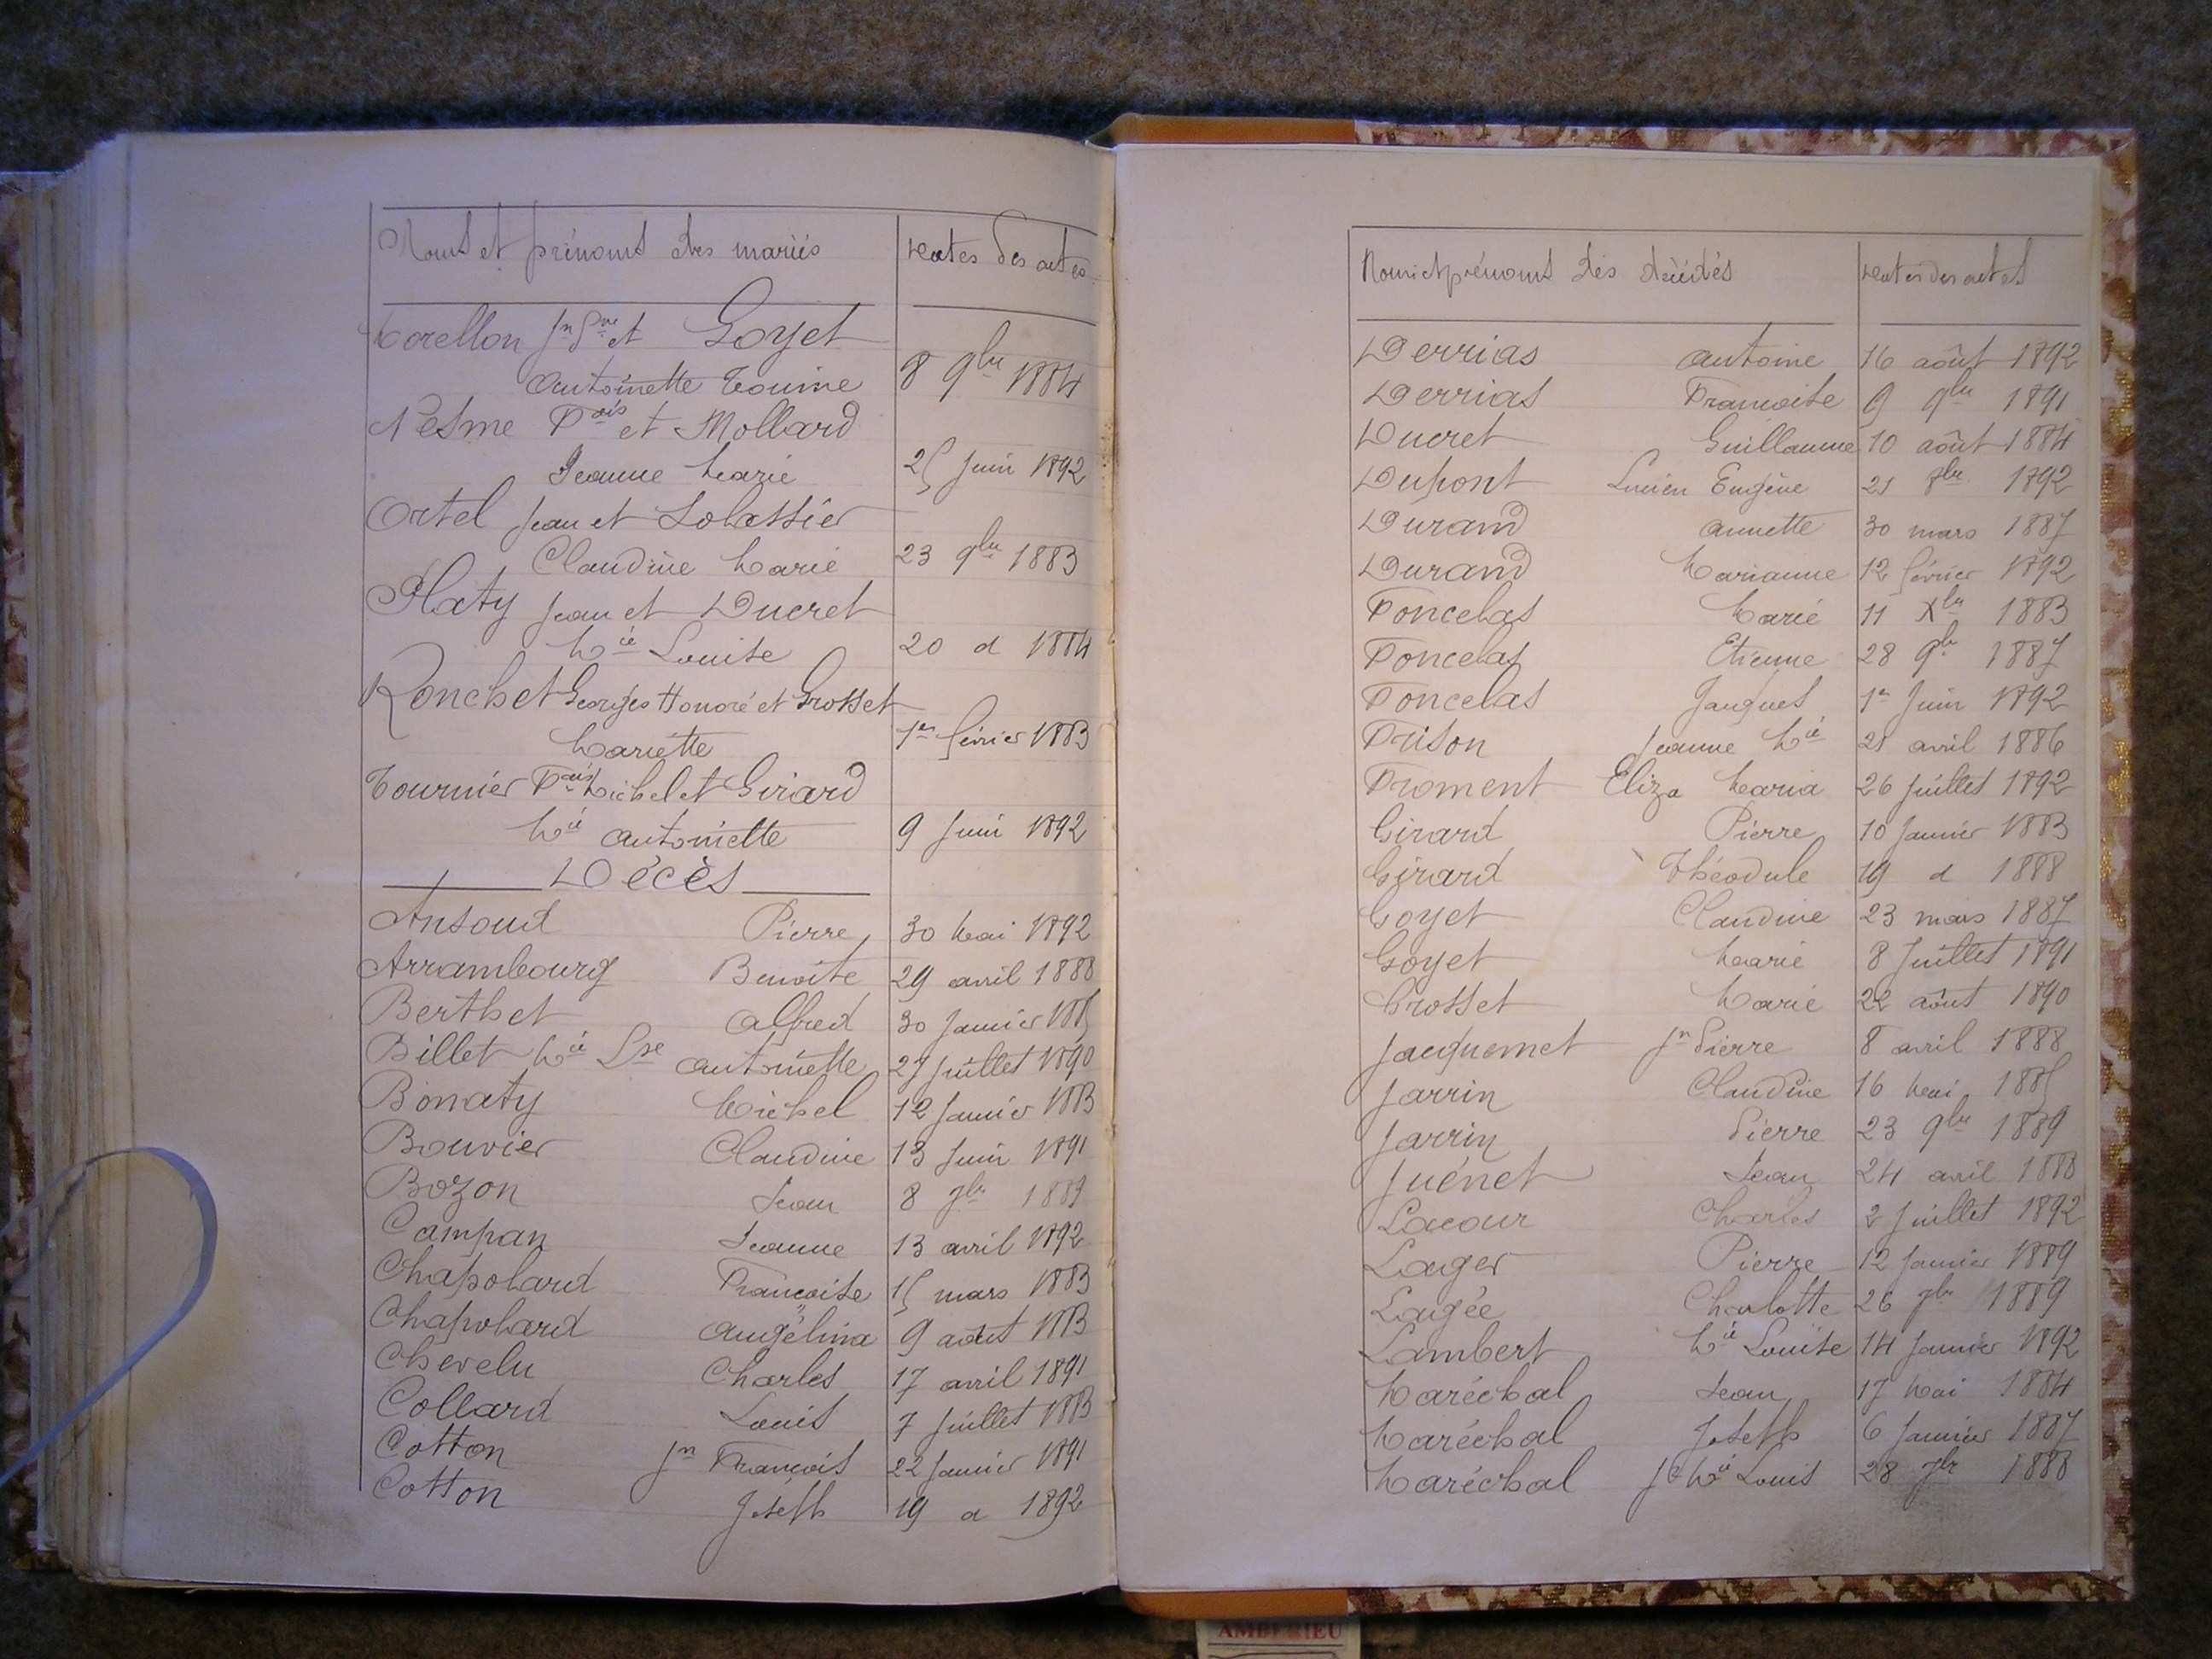 Noms et prénoms des mariés Dates des actes
Morellon Jn Pre et Goyet
Antoinette Fouine 8 9bre 1884
Nesme Fois et Mollard
Jeanne Marie 25 Juin 1892
Ortel Jean et Solassier
Claudine Marie 23 9bre 1883
Platy Jean et Ducret
Mie Louise 20 d 1884
Ronchet Georges Honoré et Grosset
Mariette 1er février 1883
Tournier Fois Michel et Girard
Mie Antoinette 9 Juin 1892
Décès
Ansoud Pierre 30 Mai 1892
Arrambourg Benoite 29 avril 1888
Berthet Alfred 30 Janvier 1885
Billet Mie Lse Antoinette 27 Juillet 1890
Bonaty Michel 12 Janvier 1883
Bouvier Claudine 13 Juin 1891
Bozon Jean 8 7bre 1889
Campan Jeanne 13 avril 1892
Chapolard Françoise 15 mars 1883
Chapolard Angélina 9 août 1883
Chevelu Charles 17 avril 1891
Collard Louis 7 Juillet 1883
Cotton Jn François 22 Janvier 1891
Cotton Joseph 19 d 1892
Noms et prénoms des décédés Dates des actes
Derrias Antoine 16 août 1892
Derrias Françoise 9 9bre 1891
Ducret Guillaume 10 août 1884
Dupont Lucien Eugène 21 8bre 1892
Durand Annette 30 mars 1887
Durand Marianne 12 février 1892
Foncelas Marie 11 Xbre 1883
Foncelas Etienne 28 9bre 1887
Foncelas Jacques 1er Juin 1892
Frison Jeanne Mie 21 avril 1886
Froment Eliza Maria 26 Juillet 1892
Girard Pierre 10 Janvier 1883
Girard Théodule 19 d 1888
Goyet Claudine 23 mars 1887
Goyet Marie 8 Juillet 1891
Grosset Marie 22 août 1890
Jacquemet Jn Pierre 8 avril 1888
Jarrin Claudine 16 Mai 1885
Jarrin Pierre 23 9bre 1889
Juénet Jean 24 avril 1888
Lacour Charles 2 Juillet 1892
Lager Pierre 12 Janvier 1889
Laugée Charlotte 26 7bre 1889
Lambert Mie Louise 14 Janvier 1892
Maréchal Jean 17 Mai 1884
Maréchal Joseph 6 Janvier 1887
Maréchal Jh Mie Louis 28 7bre 1888